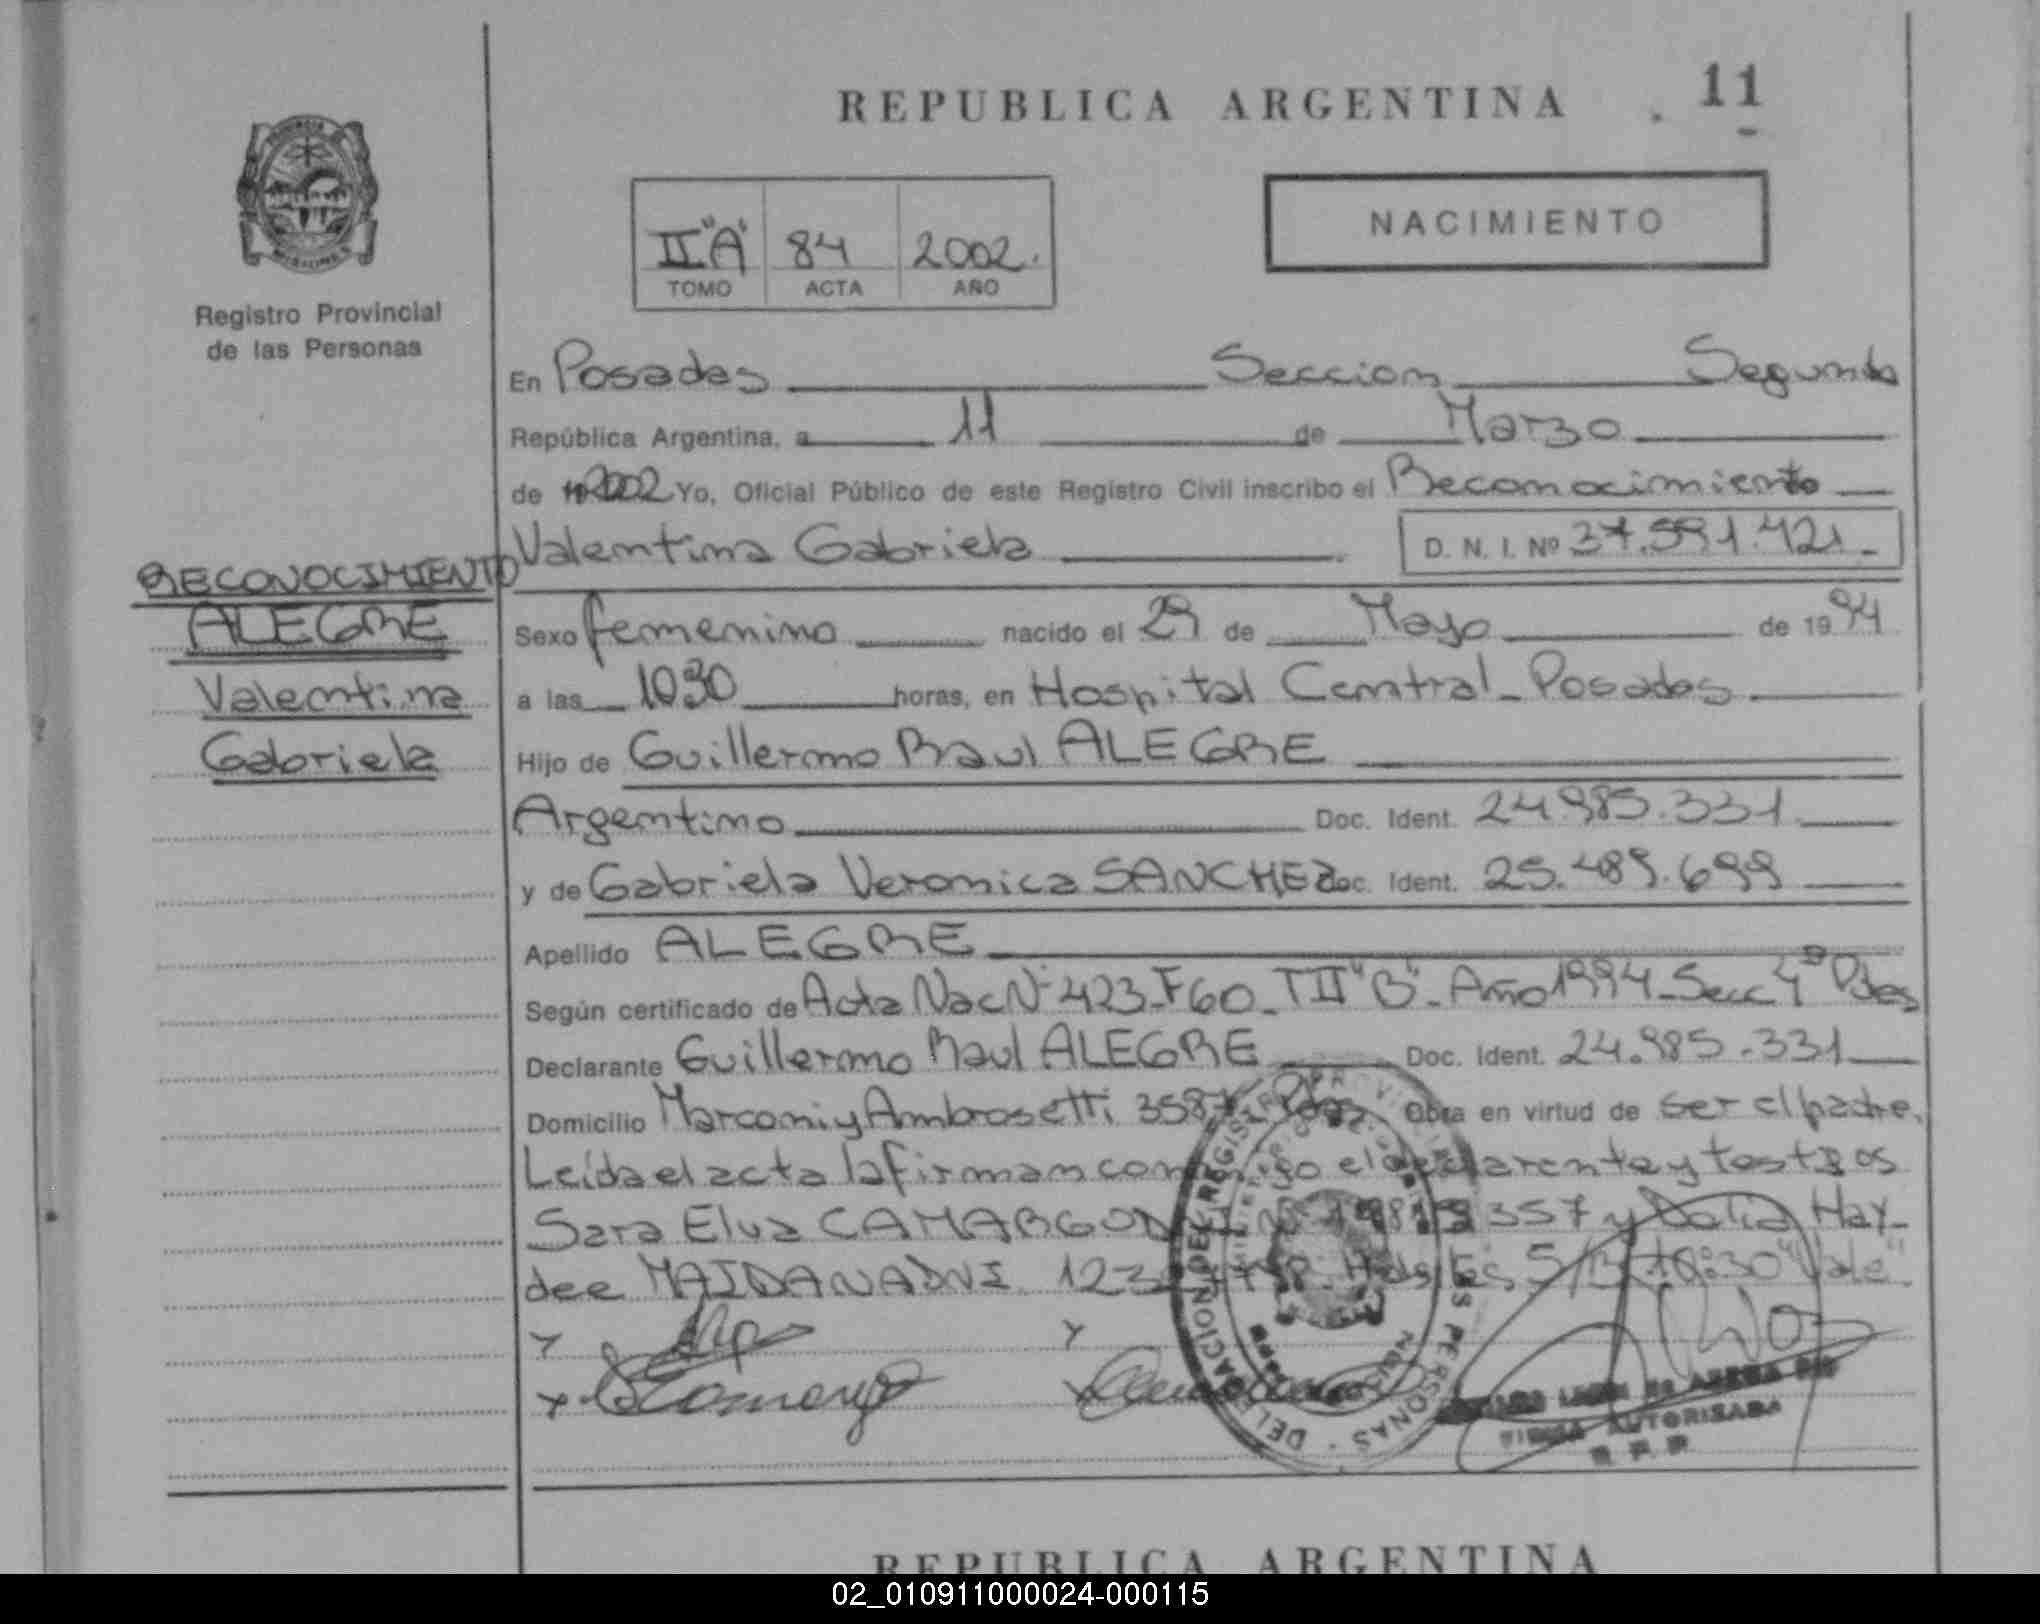 REPUBLICA ARGENTINA
11
NACIMIENTO
II "A" 84 2002.
TOMO ACTA AÑO
Registro Provincial
de las Personas
En Posadas Seccion Segunda
República Argentina, a 11 de Marzo
de 2002 Yo, Oficial Público de este Registro Civil inscribo el Reconocimiento
Valentina Gabriela D. N. I. Nº 37.591.421
RECONOCIMIENTO
ALEGRE
Valentina
Gabriela
Sexo femenino nacido el 29 de Mayo de 1994
a las 1030 horas, en Hospital Central - Posadas
Hijo de Guillermo Raul ALEGRE
Argentino Doc. Ident. 24.985.331
y de Gabriela Veronica SANCHEZ Doc. Ident. 25.489.699
Apellido ALEGRE
Según certificado de Acta Nac Nº 423-F60-TII"B"-Año 1994-Secc 4ª Pdas
Declarante Guillermo Raul ALEGRE Doc. Ident. 24.985.331
Domicilio Marconi y Ambrosetti 3587 Pdas Obra en virtud de ser el padre.
Leída el acta la firman conmigo el declarante y testigos
Sara Elva CAMARGO DNI Nº 357 y Delia Hay-
dee MAIDANA DNI 5/B 10:30 "Vale"
DELEGACION DEL REGISTRO PROVINCIAL DE LAS PERSONAS
FIRMA AUTORIZADA
R. P. P.
REPUBLICA ARGENTINA
02_010911000024-000115